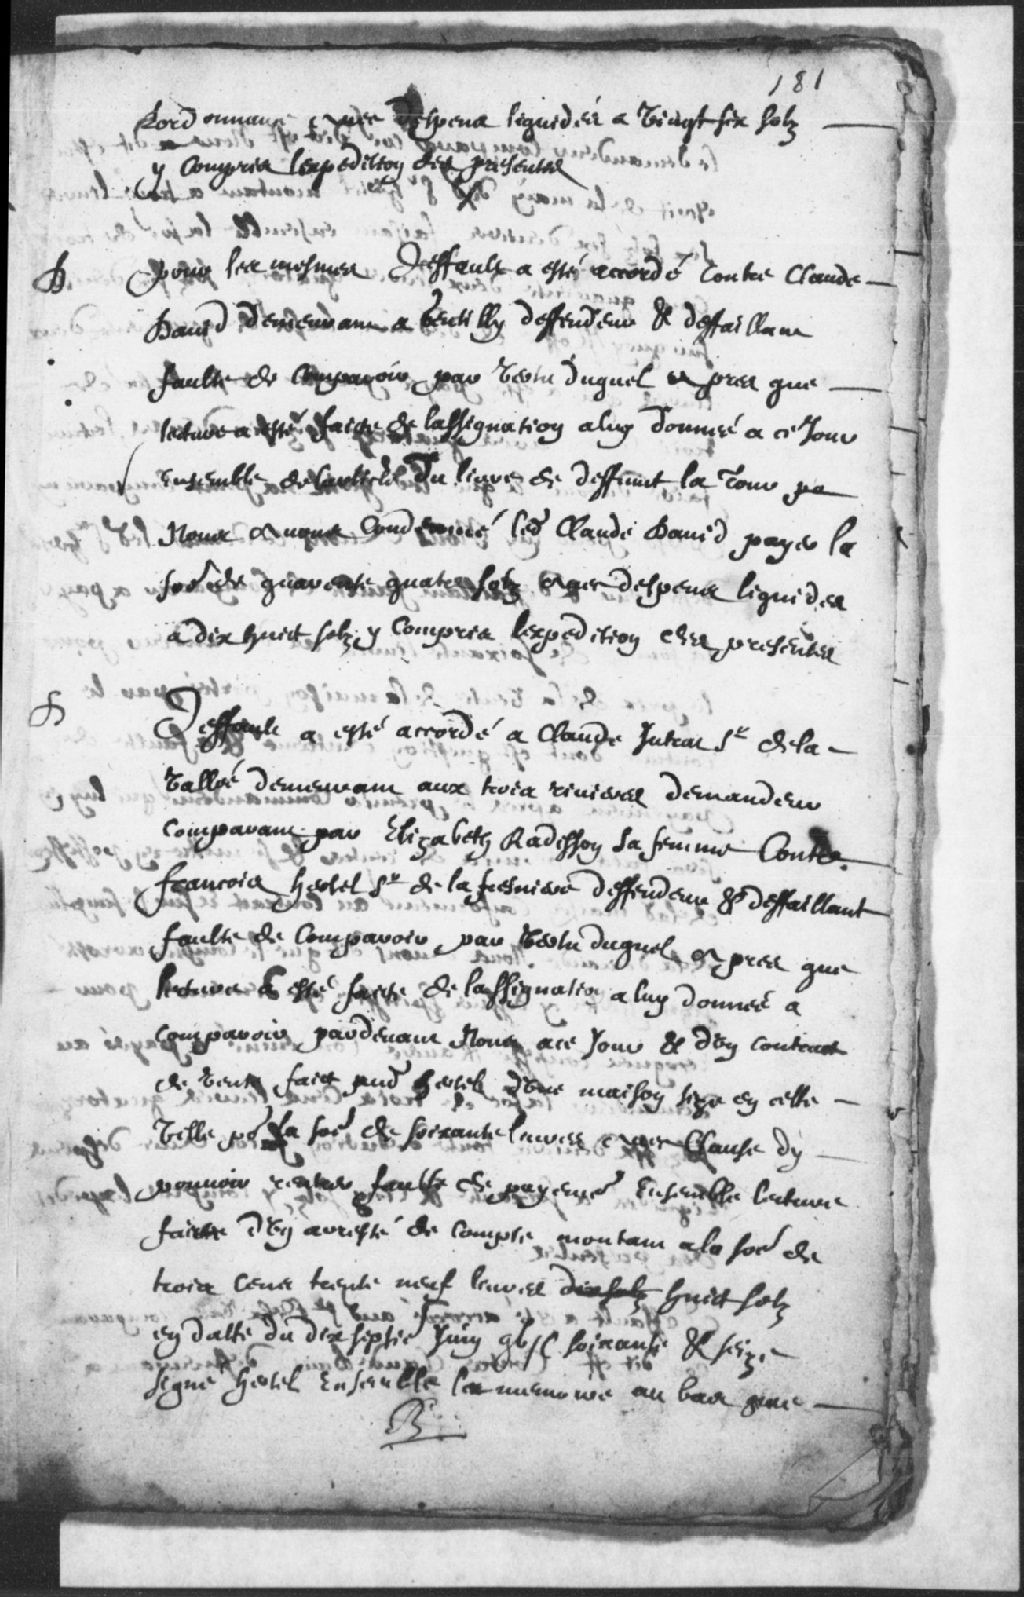 181
Lordonnance avec despens liquidés a Vingt six solz
y Compris lexpedition des presentes
D
pour les mesmes Deffault a esté accordé Contre Claude
David demeurant a Gentilly deffendeur & deffaillant
faulte de Comparoir par Vertu duquel apres que
lecture a esté faicte de lassignation a luy donnée a ce Jour
Ensemble de larticle Du livre de deffunt la Tour
Nous avons Condemné led Claude David payer la
soe de quarente quatre solz avec despens liquides
a dix huict solz y Compris lexpedition des presentes
D
Deffault a esté accordé a Claude Jutras Sr dela
Vallée demeurant aux trois rivieres demandeur
Comparant par Elizabeth Radisson sa femme Contre
francois hertel Sr de la fresniere deffendeur & deffaillant
faulte de Comparoir par Vertu duquel apres que
lecture a esté faicte de lassignation a luy donnée a
Comparoir pardevant Nous a ce Jour & dVn Contract
de Vente faict aud hertel dVne maison size en cette
Ville pr la soe de soixante livres avec Clause dy
pouvoir rentrer faulte de payemt Ensemble lecture
faicte dVn arresté de Compte montant a la soe de
trois Cens trente neuf livres dix solz huict solz
en datte du dix septie Juin gbic soixante & seize
signé hertel Ensemble le memoire au bas que